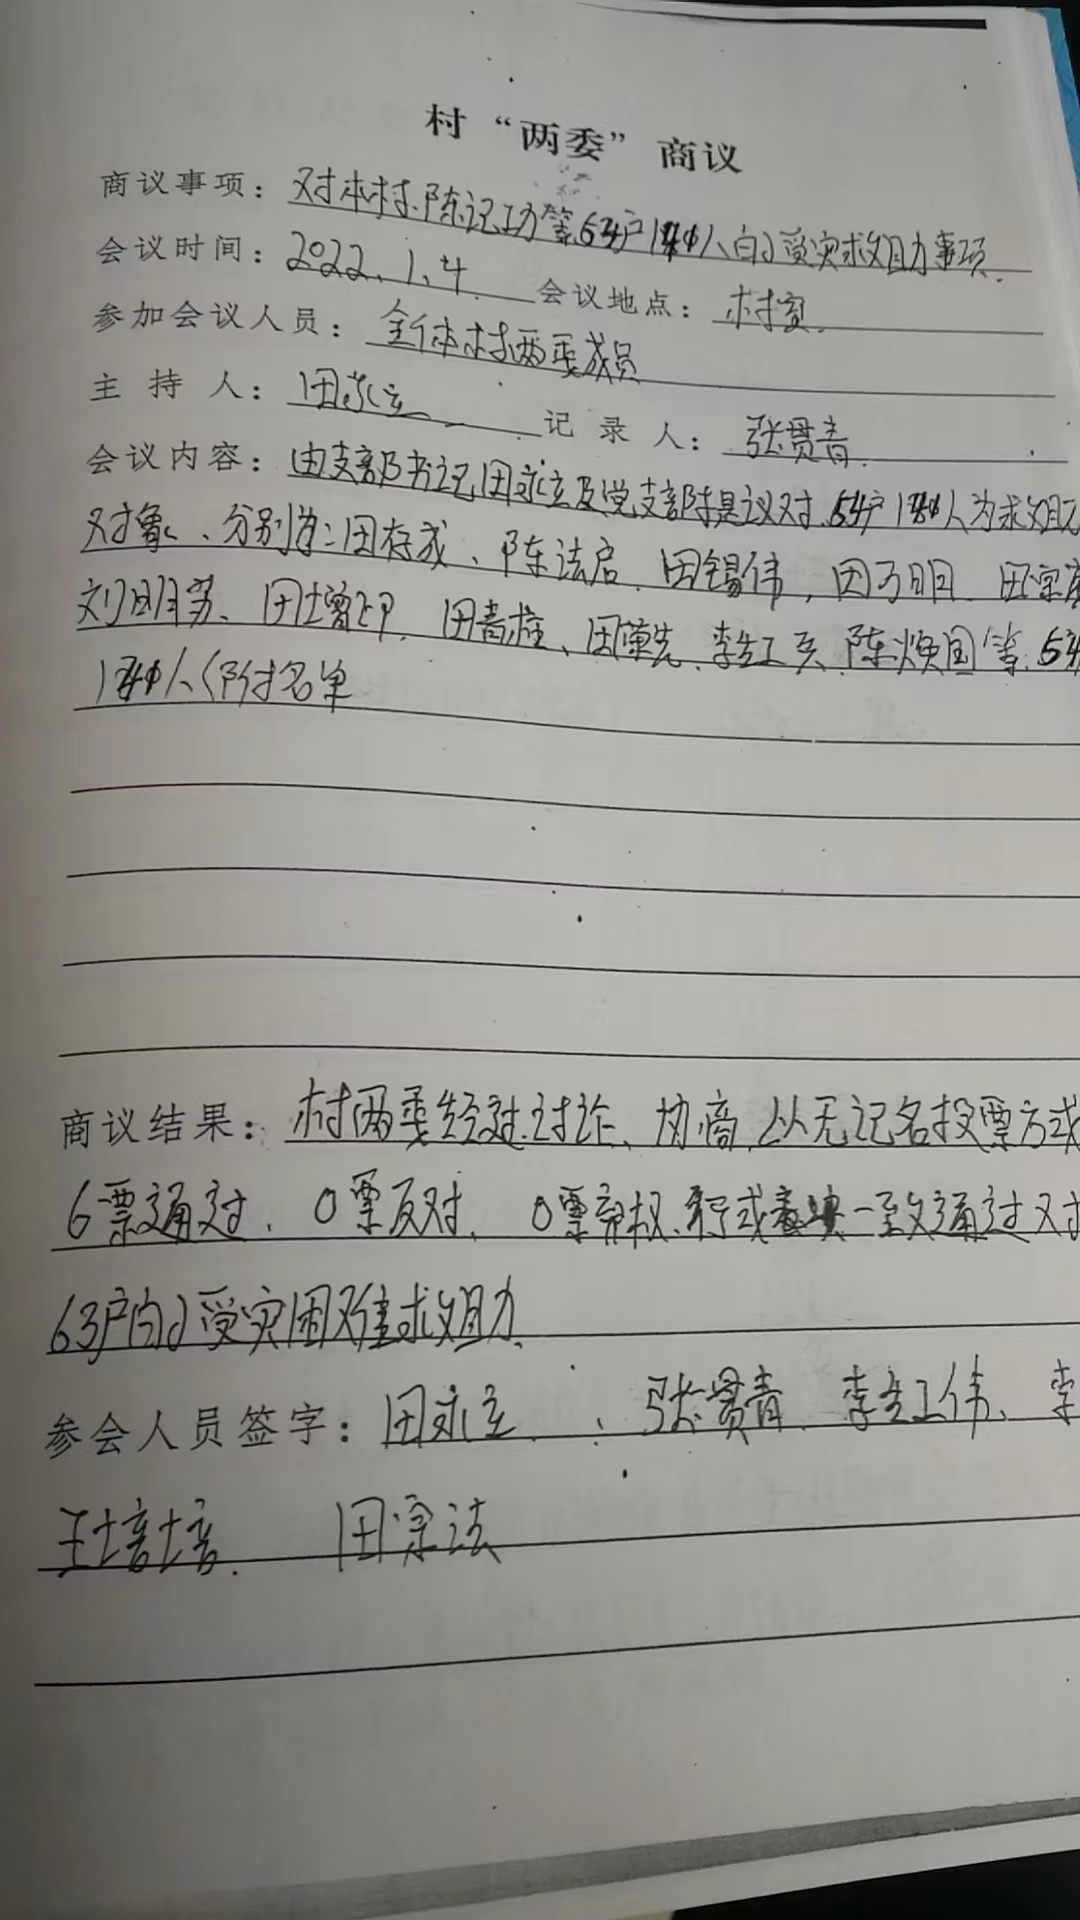 村“两委”商议
商议事项：对本村陈记功等 户 人的受灾求姐力事项.
会议时间：2022.1.4 会议地点：村室.
参加会议人员：全体村两委成员
主持人：田永立 记录人：张贯青.
会议内容：由支部书记田永立及党支部提议对 户 人为求姐
对象、分别为：田存成、陈法启.田锡伟,田万明.田宗
刘明芳、田增印.田青柱、田 先.李红兵.陈焕国等.
人(附名单
商议结果：村两委经过讨论、协商,以无记名投票方式
6票通过.0票反对.0票弃权. 一致通过对
63户的受灾困难求姐力.
参会人员签字：田永立、张贯青.李红伟、李
王培培.田宗法